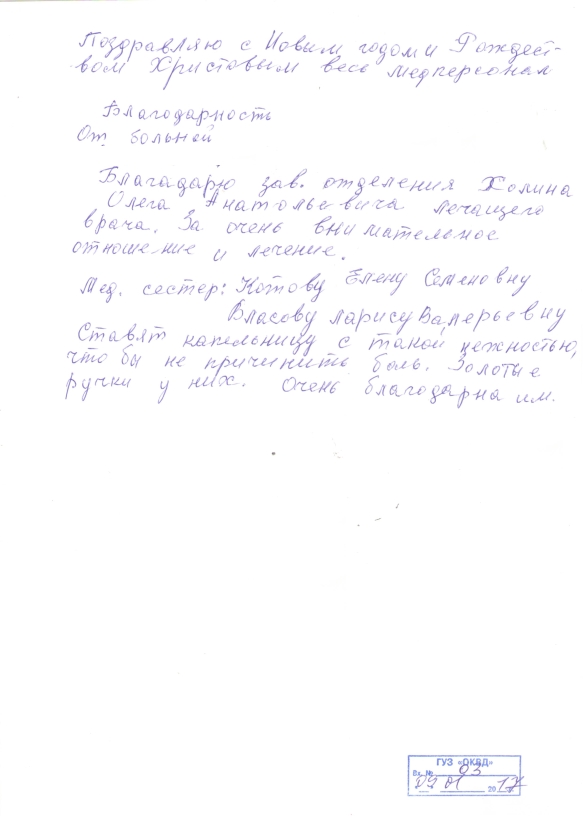 Поздравляю с Новым годом и Рождест-
вом Христовым весь медперсонал
Благодарность
От больной
Благадарю зав. отделения Холина
Олега Анатольевича лечащего
врача. За очень внимательное
отношение и лечение.
Мед. сестер: Котову Елену Семеновну
Власову Ларису Валерьевну
Ставят капельницу с такой нежностью,
что бы не причинить боль. Золотые
ручки у них. Очень благодарна им.
ГУЗ «ОКВД»
Вх. № 03
09 01 2017